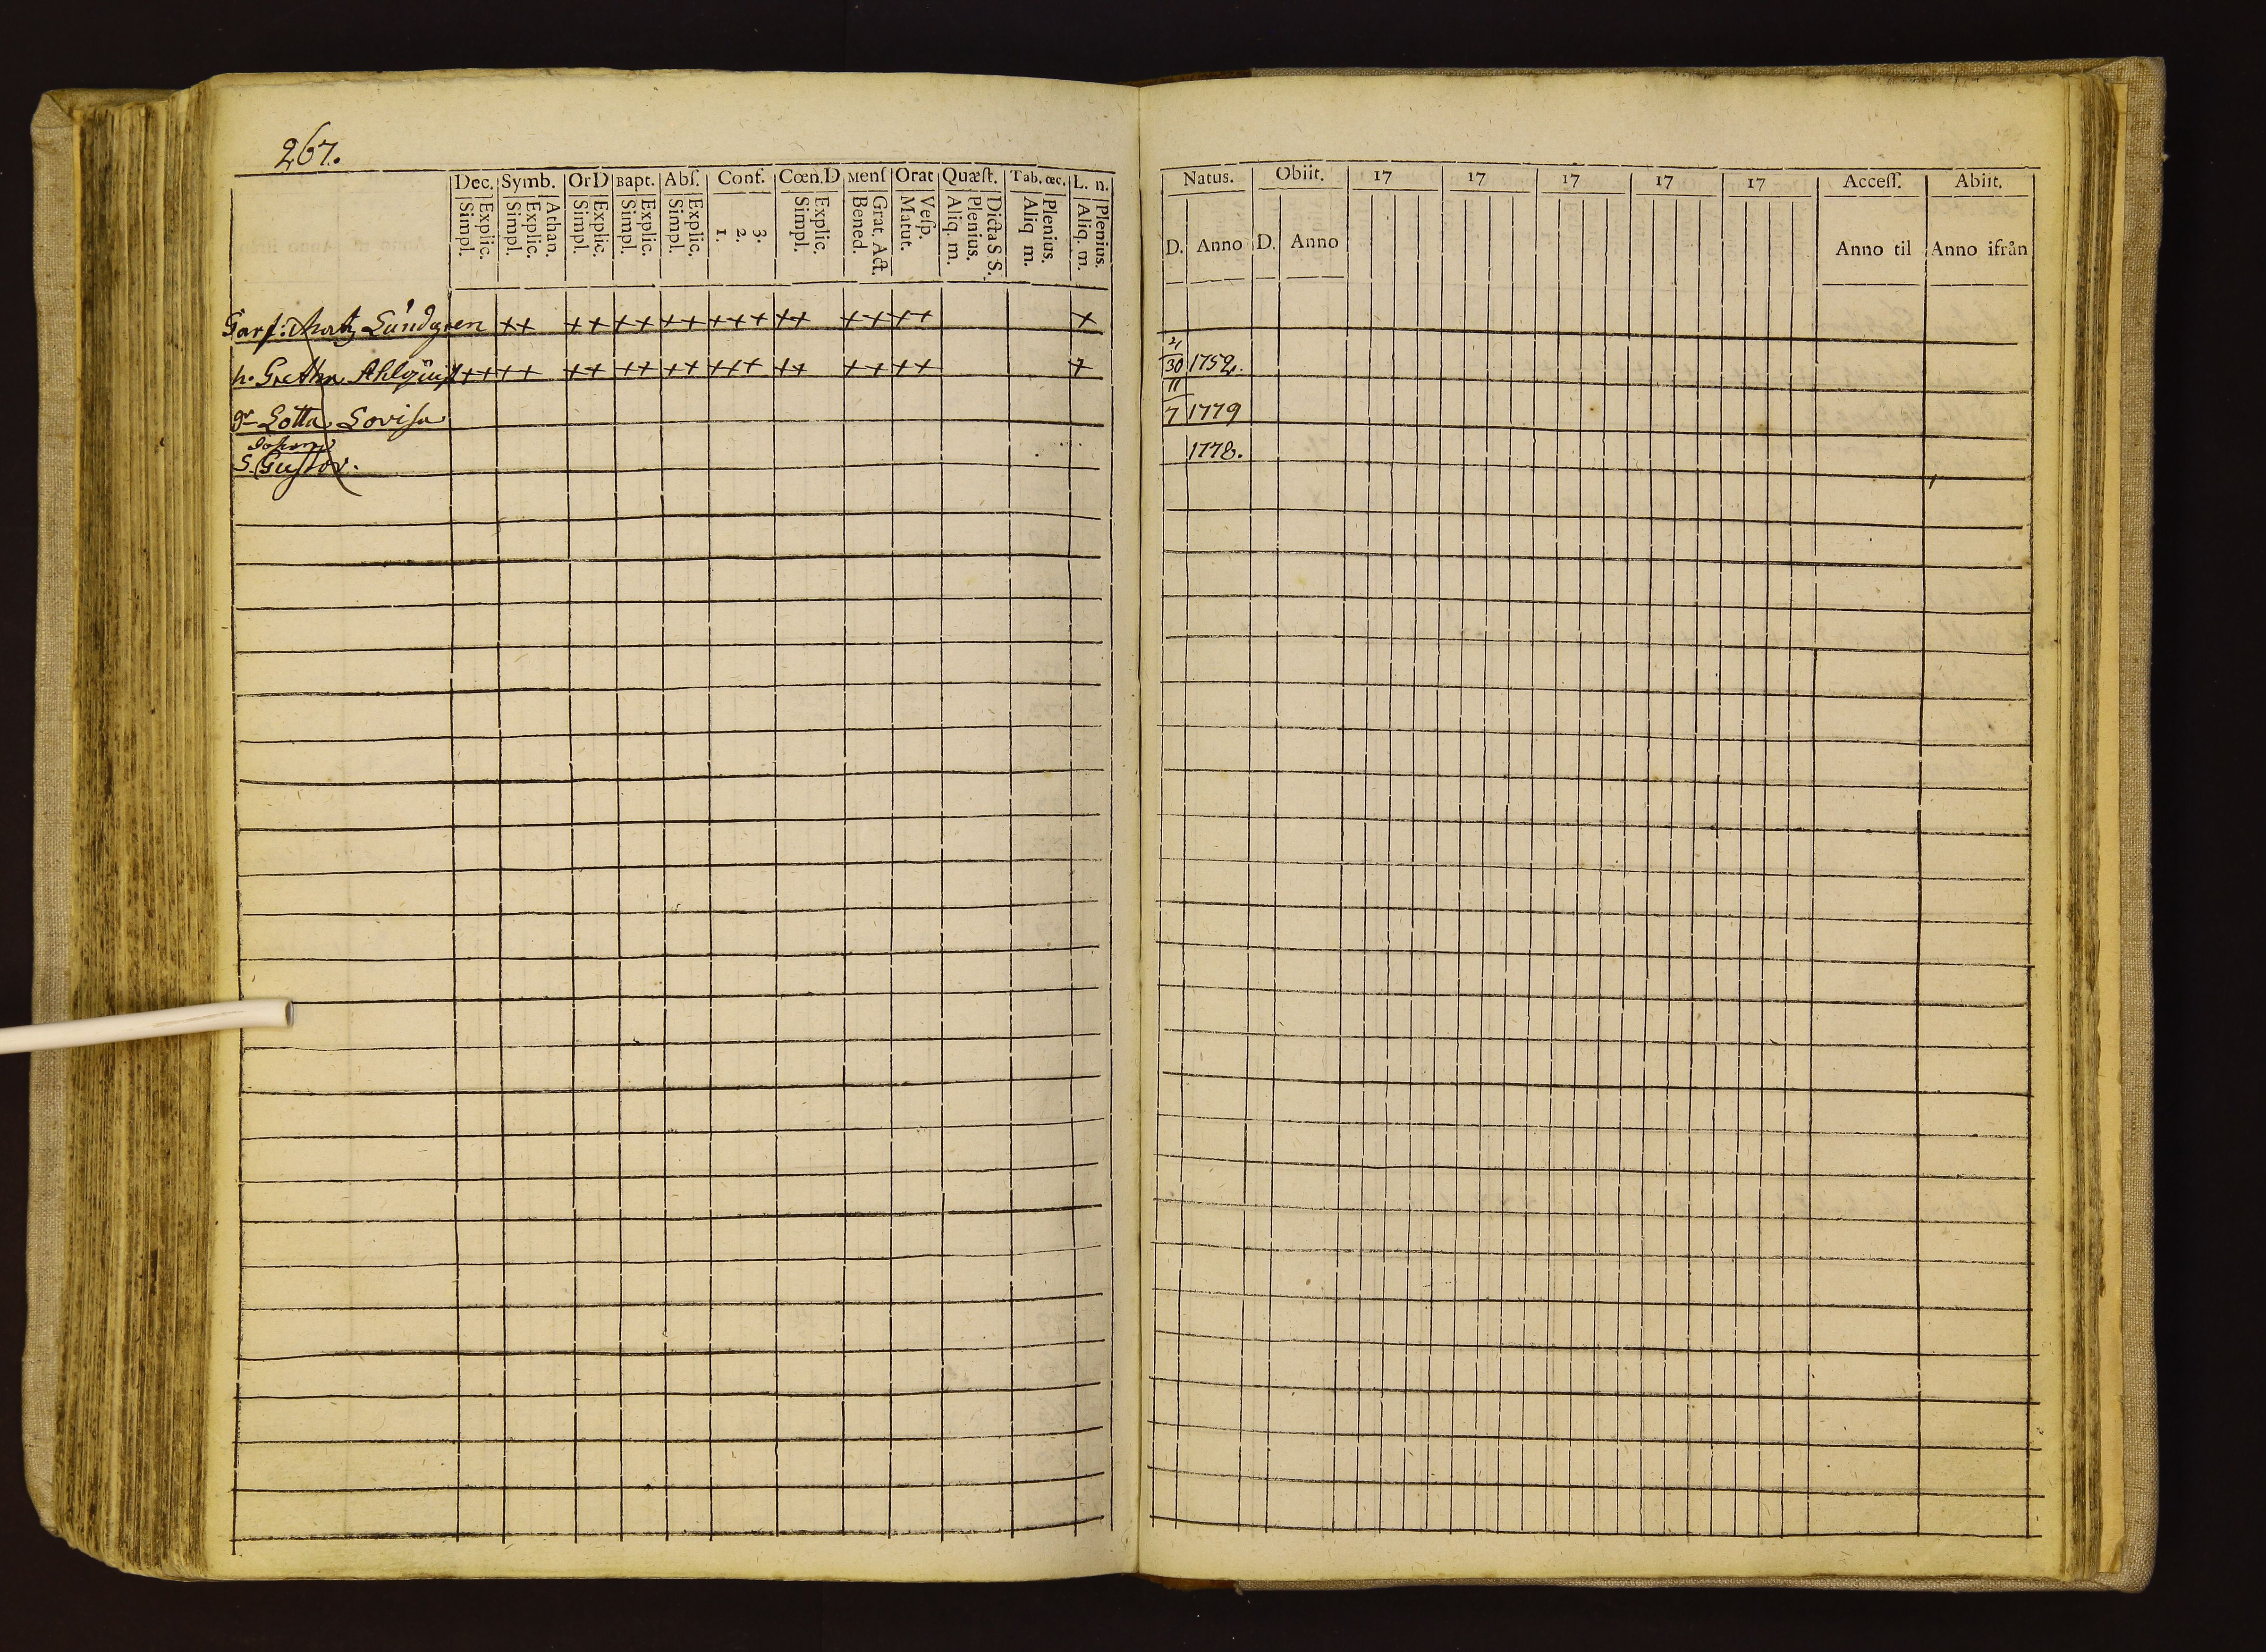 267.
Dec. Symb. Or D Bapt. Abſ. Conf. Cœn.D Menſ Orat Quæſt. Tab. œc. L. n.
Simpl. Explic. Simpl. Explic. Athan. Simpl. Explic. Simpl. Explic. Simpl. Explic. 1. 2. 3. Simpl. Explic. Bened. Grat. Act. Matut. Veſp. Aliq. m. Plenius. Dicta S. S. Aliq m. Plenius. Aliq. m. Plenius.
Matz Lundgren ++ ++ ++ ++ +++ ++ ++ ++ +
h. Gretha Ahlquist ++ ++ ++ ++ ++ +++ ++ ++ ++ +
Lotta Lovisa
Johan
S. Gustav.
Natus. Obiit. 17 17 17 17 17 Acceſſ. Abiit.
D. Anno D. Anno Anno til Anno ifrån
30 1752.
11
7 1779
1778.